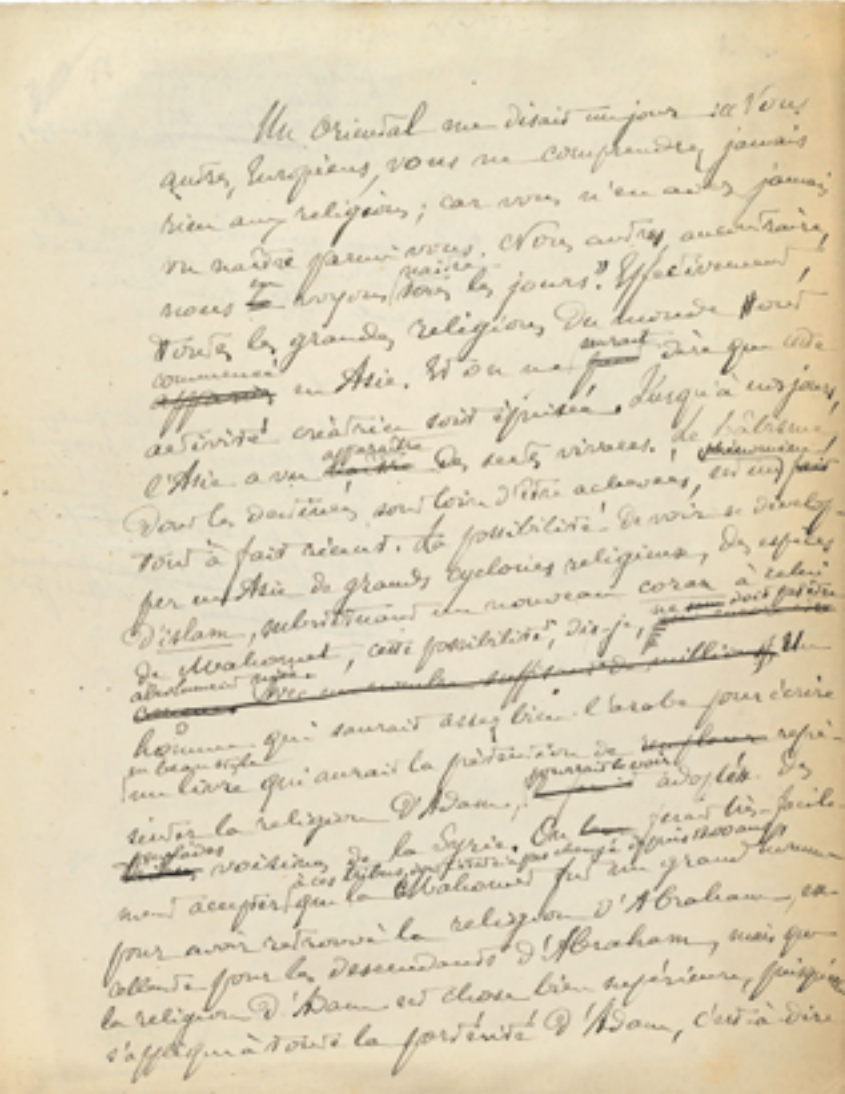 Un Oriental me disait un jour : « Vous
autres, Européens, vous ne comprendrez jamais
rien aux religions ; car vous n'en avez jamais
vu naître parmi vous. Nous autres, au contraire,
naître
nous en voyons tous les jours. » Effectivement,
toutes les grandes religions du monde ont
commencé
apparu en Asie. Et on ne saurait dire que cette
activité créatrice soit épuisée. Jusqu'à nos jours,
apparaître
l'Asie a vu naître des sectes vivaces. Le bâbisme,
phénomène
dont les destinées sont loin d'être achevées, est un fait
tout à fait récent. La possibilité de voir se dévelop-
per en Asie de grands cyclones religieux, des espèces
d'islam, substituant un nouveau coran à celui
ne doit pas être
de Mahomet, cette possibilité, dis-je,
absolument niée.
avec un nombre suffisant de millions, Un
homme qui saurait assez bien l'arabe pour écrire
en beau style
un livre qui aurait la prétention de repré-
senter la religion d'Adam, pourrait le voir adopté des
peuplades
voisines de la Syrie. On ferait très-facile-
à ces tribus, dont l'esprit n'a pas changé depuis 1200 ans,
ment accepter que Mahomet fut un grand homme
pour avoir retrouvé la religion d'Abraham, ex-
cellente pour les descendants d'Abraham, mais que
la religion d'Adam est chose bien supérieure, puisqu'elle
s'applique à toute la postérité d'Adam, c'est-à-dire